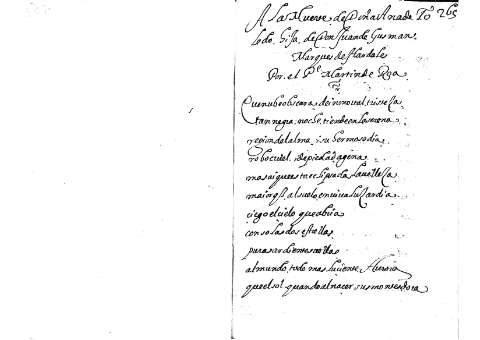 A la Muerte de Doña Ana de To 265
ledo, hija, de Don Juan de Gusman
Marques de Hardale
Por el Pe Martin de Roa
nube obscura de ynmortal tristeza
tan negra noche tiende en la serena
region del alma i su hermoso dia
robo cruel, de piedad agena
mas ai que esta eclipsada, la velleza
mai al suelo en viva luz ardia
ciego el cielo que abria
con solas dos estrellas
puras ardientes vellas
al mundo, todo mas luciente Aurora
que el sol quando al nacer sus montes dora